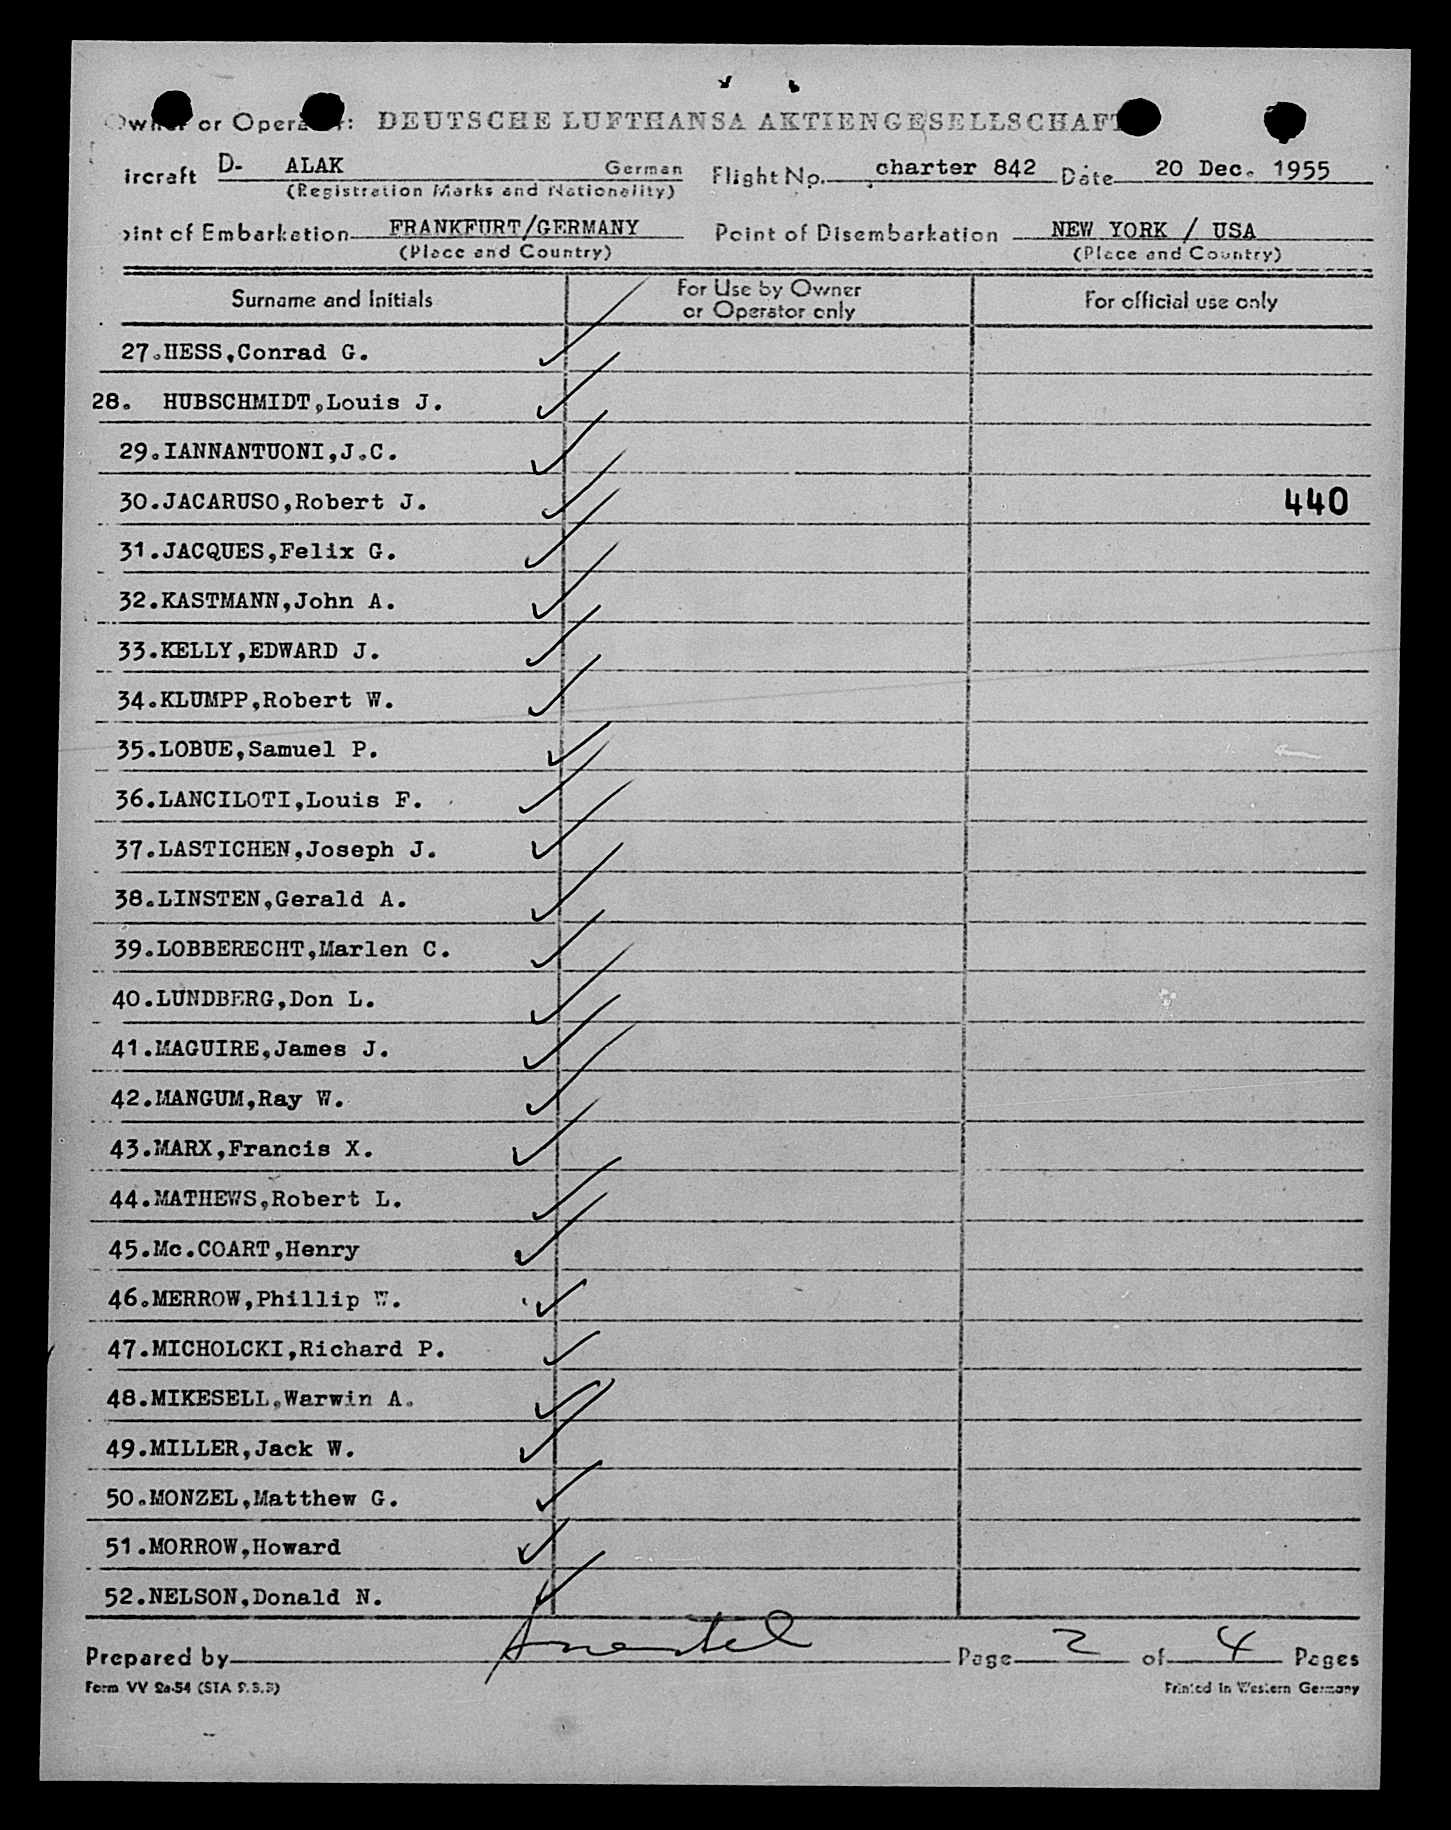 Owner or Operator: DEUTSCHE LUFTHANSA AKTIENGESELLSCHAFT
ircraft D- ALAK German Flight No. charter 842 Date 20 Dec. 1955
(Registration Marks and Nationality)
oint of Embarkation FRANKFURT/GERMANY Point of Disembarkation NEW YORK / USA
(Place and Country) (Place and Country)
Surname and Initials For Use by Owner or Operator only For official use only
27.HESS,Conrad G.
28. HUBSCHMIDT,Louis J.
29.IANNANTUONI,J.C.
30.JACARUSO,Robert J. 440
31.JACQUES,Felix G.
32.KASTMANN,John A.
33.KELLY,EDWARD J.
34.KLUMPP,Robert W.
35.LOBUE,Samuel P.
36.LANCILOTI,Louis F.
37.LASTICHEN,Joseph J.
38.LINSTEN,Gerald A.
39.LOBBERECHT,Marlen C.
40.LUNDBERG,Don L.
41.MAGUIRE,James J.
42.MANGUM,Ray W.
43.MARX,Francis X.
44.MATHEWS,Robert L.
45.Mc.COART,Henry
46.MERROW,Phillip W.
47.MICHOLCKI,Richard P.
48.MIKESELL,Warwin A.
49.MILLER,Jack W.
50.MONZEL,Matthew G.
51.MORROW,Howard
52.NELSON,Donald N.
Prepared by Page 2 of 4 Pages
Form VV 2a-54 (STA P.S.B) Printed in Western Germany